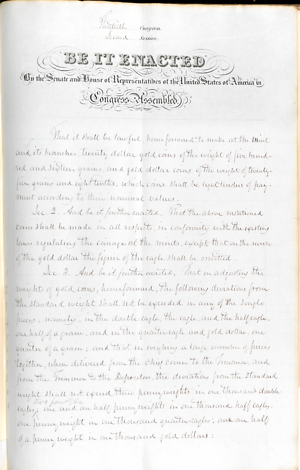 Congress.
Second Session.
BE IT ENACTED
By the Senate and House of Representatives of the United States of America in
Congress Assembled
That it shall be lawful, henceforward to make at the Mint
and its branches twenty dollar gold coins of the weight of five hun-
dred and sixteen grains, and gold dollar coins of the weight of twenty-
five grains and eight tenths, which coins shall be legal tender of pay-
ment according to their nominal values.
Sec. 2. And be it further enacted. That the above mentioned
coins shall be made in all respects in conformity with the existing
laws regulating the coinage of the mints, except that on the reverse
of the gold dollar the figure of the eagle shall be omitted.
Sec. 3. And be it further enacted. That in adjusting the
weight of gold coins, henceforward, the following deviations from
the standard weight shall not be exceeded in any of the single
pieces: namely, in the double eagle, the eagle, and the half eagle,
one half of a grain; and in the quarter eagle and gold dollar, one
quarter of a grain; and that in weighing a large number of pieces
together, when delivered from the chief coiner to the Treasurer, and
from the Treasurer to the Depositor, the deviation from the standard
weight shall not exceed three pennyweights in one thousand double
eagles; one and one half pennyweights in one thousand half eagles;
one pennyweight in one thousand quarter eagles; and one half
of a pennyweight in one thousand gold dollars: